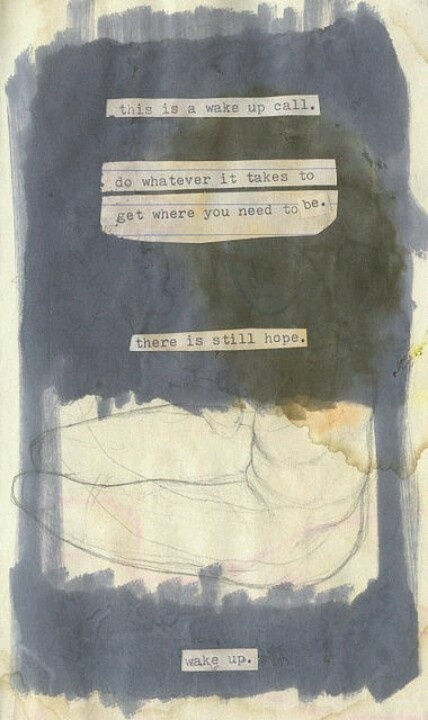 this is a wake up call.
do whatever it takes to
get where you need to be.
there is still hope.
wake up.